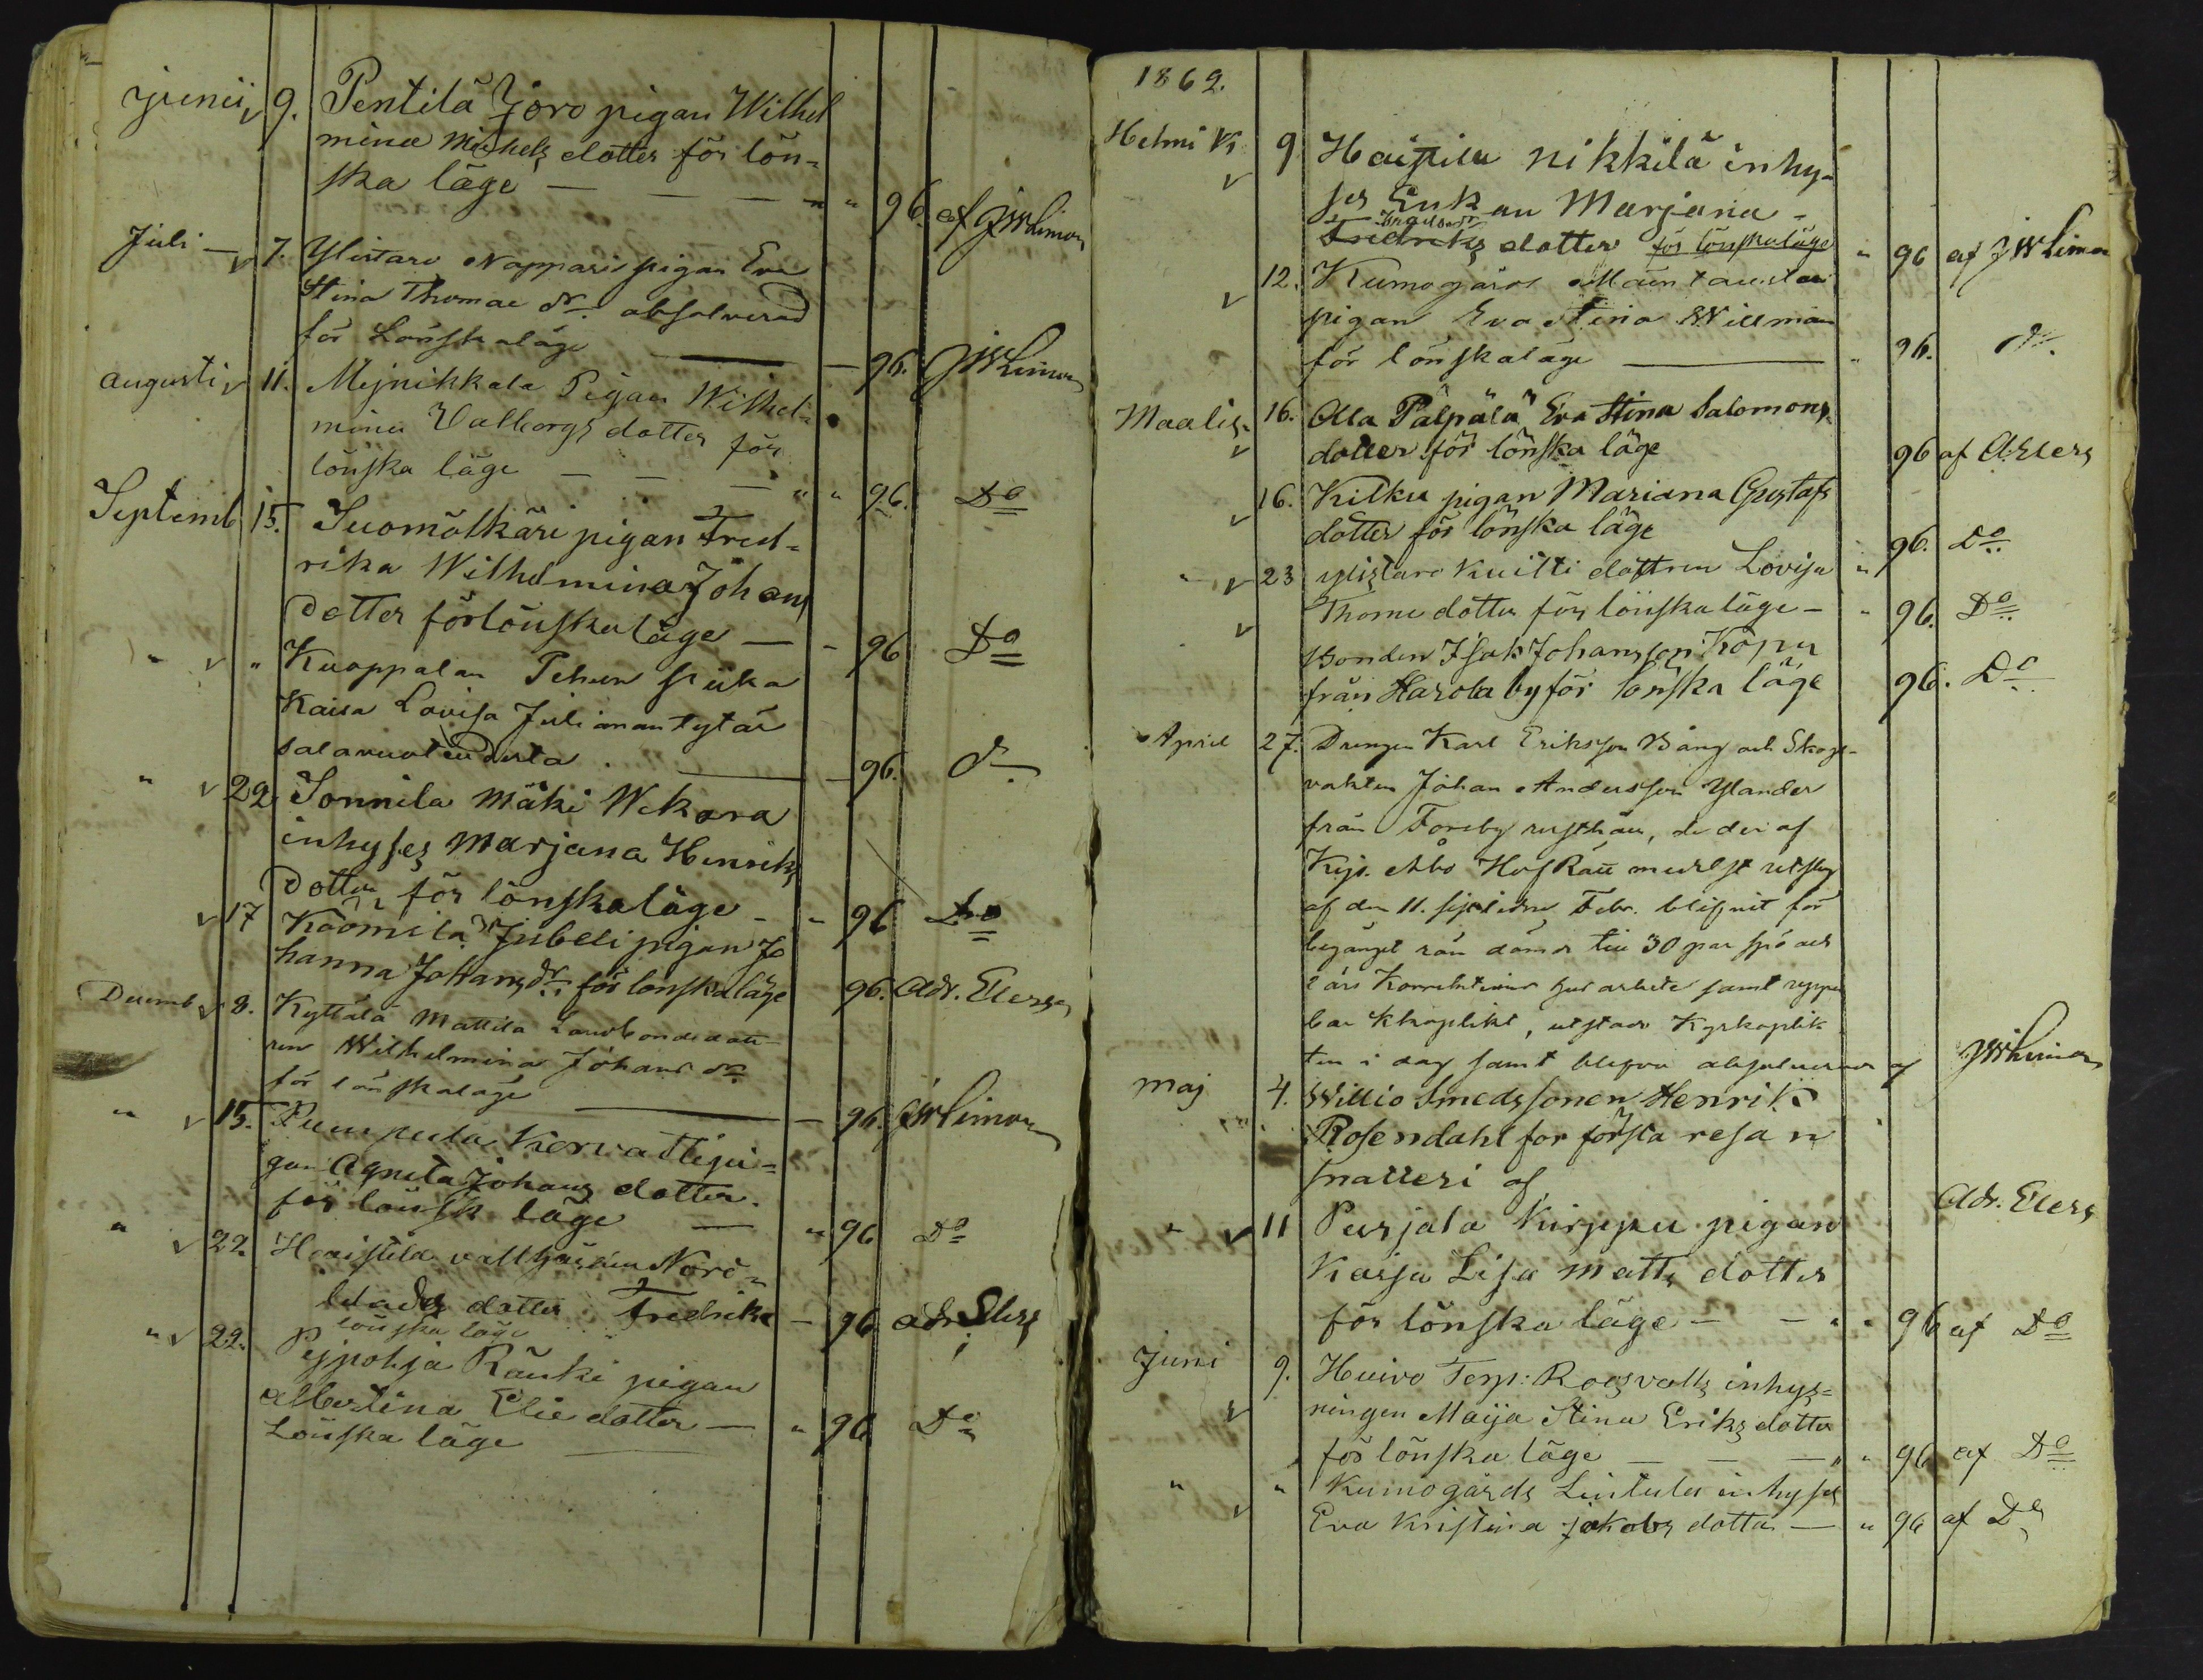 junii v 9. Pentilä Joro pigan Wilhel
mina Michels dotter för lön=
ska läge — — — " 96. af JWLimon
Juli — v 7. Ylistaro Napparis pigan Eva
Stina Thomae dr. absolverad
för Lönskaläge — 96. JWLimon
augusti v 11. Mejnikkala Pigan Wilhel=
mina Valborgs dotter för
lönska läge — — — " " 96. Do
Septemb 15. Suomölkäri pigan Fred=
rika Wilhelmina Johans
dotter för lönska läge — - 96 Do
" v " Kuoppalan Pehun piika
Kaisa Lovisa Julianan tytär
salavuoteudesta — 96. do
" v 22 Sonnila Mäki Wekara
inhyses Marjana Henriks
dotter för lönskaläge - " 96 Do
v 17 Käömilä Jubeli pigan Jo
hanna Johansdr. för lönskaläge 96. Adr. Elers
Decemb v 8. Kyttälä Mattila Landbondedott-
ren Wilhelmina Johans dr.
för lönskaläge — 96. JWLimon
" v 15. Pumpula Kervatti pi=
gan Agneta Johans dotter.
för lönsk läge — " 96 Do
" v 22. Haistila vallhjärden Nord=
blads dotter Fredrika - 96 Adr Elers
lönska läge
" v 22. Pejpohja Ränki pigan
Albertina Elie dotter — " 96 Do
Lönska läge —
1862.
Helmi K. 9 Haistila Nikkilä inhy=
v ses Enkan Marjana -
Fredriks dotter för lönskaläge " 96 af JWLimon
v 12. Kumogård Mäentaustan
pigan Eva Stina Willman
för lönskaläge — " 96. do.
Maalis= 16. Olla Pälpälä Eva Stina Salomons
v dotter för lönska läge 96 af A. Elers
v 16. Kilku pigan Mariana Gustafs
dotter för lönska läge 96. Do
" v 23 Ylistaro Kuitti dottren Lovisa "
Thome dotter för lönska läge - " 96. Do
v Bonden Isak Johansson Köpu
från Harola by för lönska läge 96. Do
April 27. Drengen Karl Eriksson Bång och Skogs-
vakten Johan Andersson Ylander
från Forsby rusthåll, de der af
Kejs. Åbo Hof Rätt medelst utslag
af den 11. sistledne Febr. blifvit för
begånget rån dömde till 30 par spö och
2 års Korrektions hus arbete samt uppen
bar Kkoplikt, utstodo Kyrkoplik
ten i dag samt blefvo absolverade af JWLimon
Maj 4. Willio Smedssonen Henrik
" Rosendahl för första resan
snatteri af Adr. Elers
" v 11 Purjala Kirppu pigan
Kaisa Lisa Matts dotter
för lönska läge - - " " 96 af Do
Juni 9. Huivo Torp: Rosvalls inhys=
v ningen Maija Stina Eriks dotter
för lönska läge — — — " " 96 af Do
" " Kumogårds Lintula inhyses
v Eva Kristina Jakobs dotter — " 96 af Do